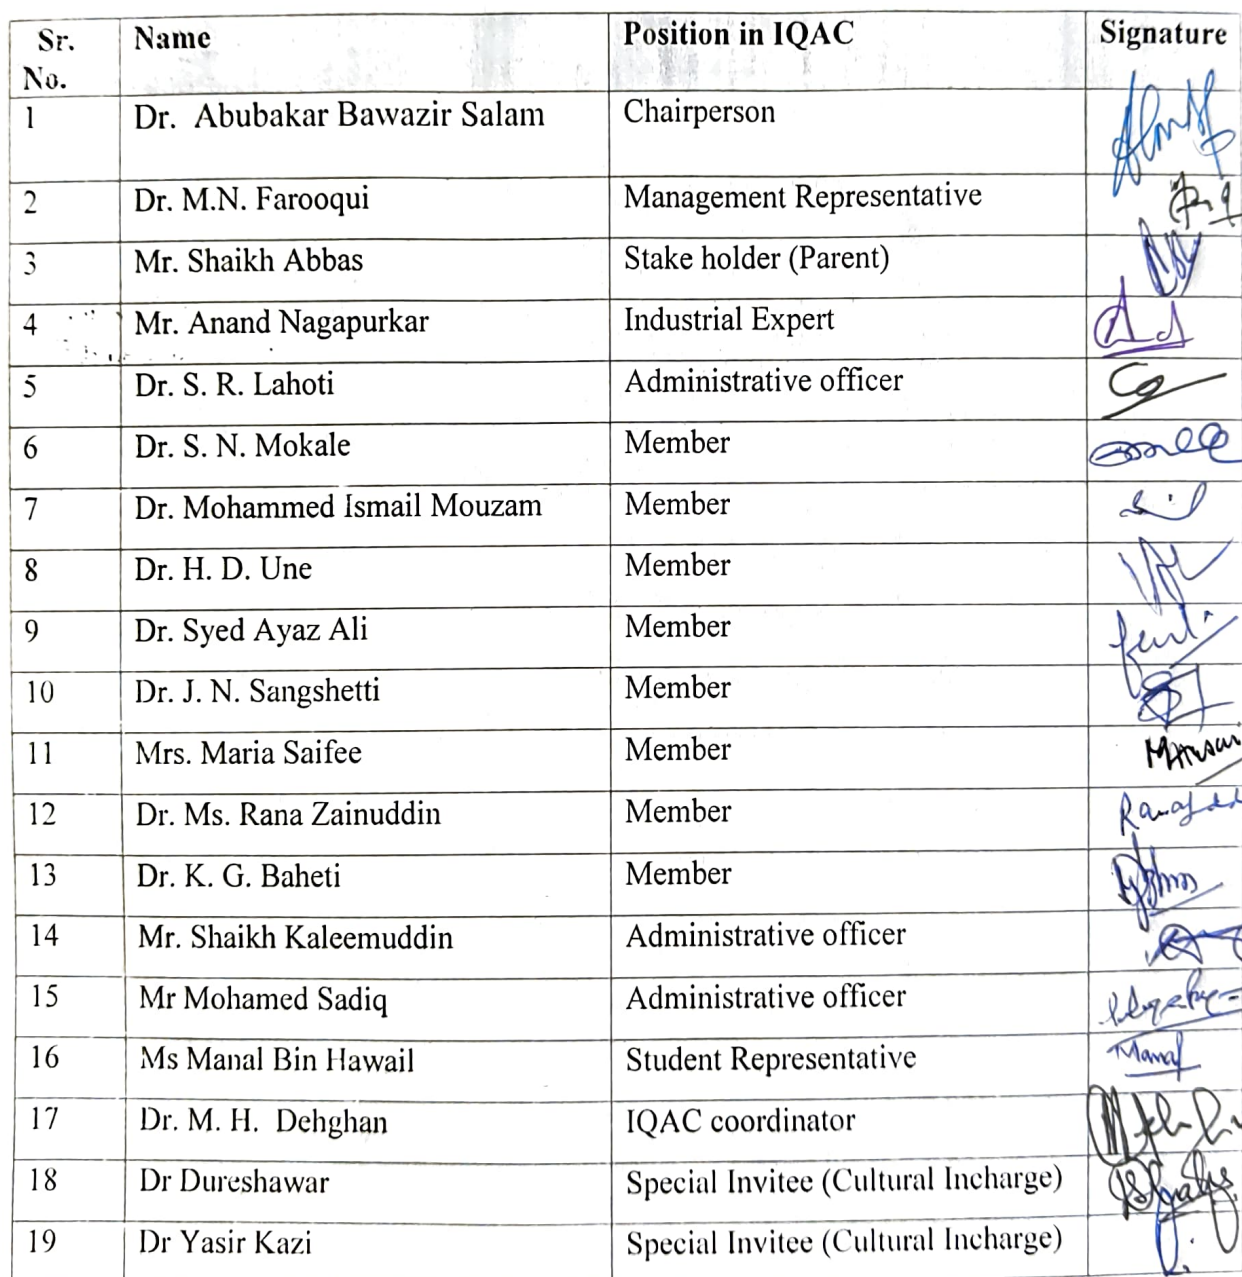 Sr. No. Name Position in IQAC Signature
1 Dr. Abubakar Bawazir Salam Chairperson
2 Dr. M.N. Farooqui Management Representative
3 Mr. Shaikh Abbas Stake holder (Parent)
4 Mr. Anand Nagapurkar Industrial Expert
5 Dr. S. R. Lahoti Administrative officer
6 Dr. S. N. Mokale Member
7 Dr. Mohammed Ismail Mouzam Member
8 Dr. H. D. Une Member
9 Dr. Syed Ayaz Ali Member
10 Dr. J. N. Sangshetti Member
11 Mrs. Maria Saifee Member
12 Dr. Ms. Rana Zainuddin Member
13 Dr. K. G. Baheti Member
14 Mr. Shaikh Kaleemuddin Administrative officer
15 Mr Mohamed Sadiq Administrative officer
16 Ms Manal Bin Hawail Student Representative
17 Dr. M. H. Dehghan IQAC coordinator
18 Dr Dureshawar Special Invitee (Cultural Incharge)
19 Dr Yasir Kazi Special Invitee (Cultural Incharge)